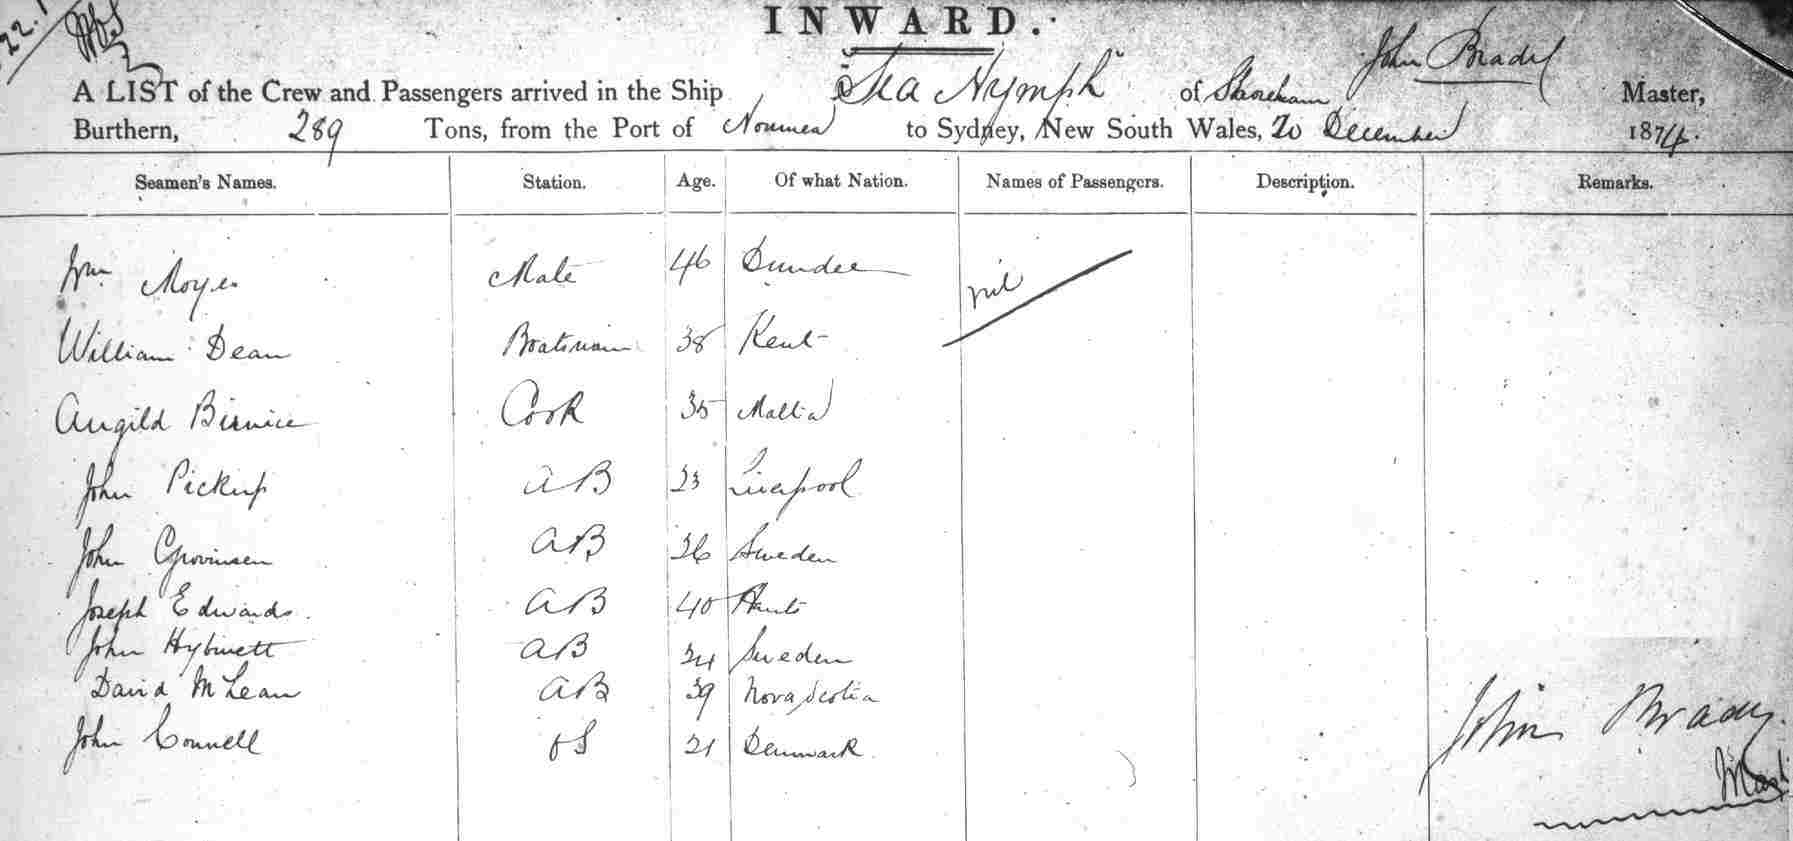 INWARD.
John Brady
A LIST of the Crew and Passengers arrived in the Ship "Sea Nymph" of Shoreham Master,
Burthern, 289 Tons, from the Port of Noumea to Sydney, New South Wales, 20 December 1874.
Seamen's Names. Station. Age. Of what Nation. Names of Passengers. Description. Remarks.
Wm Moyes Mate 46 Dundee nil
William Dean Boatswain 38 Kent
Augild Birnice Cook 35 Malta
John Pickup AB 23 Liverpool
John AB 26 Sweden
Joseph Edwards. AB 40 Hants
John Hybinett AB 24 Sweden
David McLean AB 39 Nova Scotia
John Connell OS 21 Denmark
John Brady.